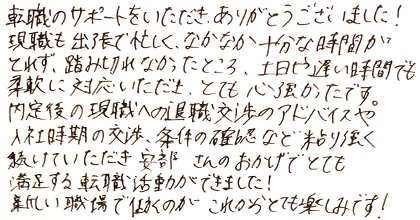 転職のサポートをいただき、ありがとうございました！
現職も出張で忙しく、なかなか十分な時間が
とれず、踏み切れなかったところ、土日や遅い時間でも
柔軟に対応いただき、とても心強かったです。
内定後の現職への退職交渉のアドバイスや
入社時期の交渉、条件の確認など粘り強く
続けていただき安部 さんのおかげでとても
満足する転職活動ができました！
新しい職場で働くのが これからとても楽しみです！